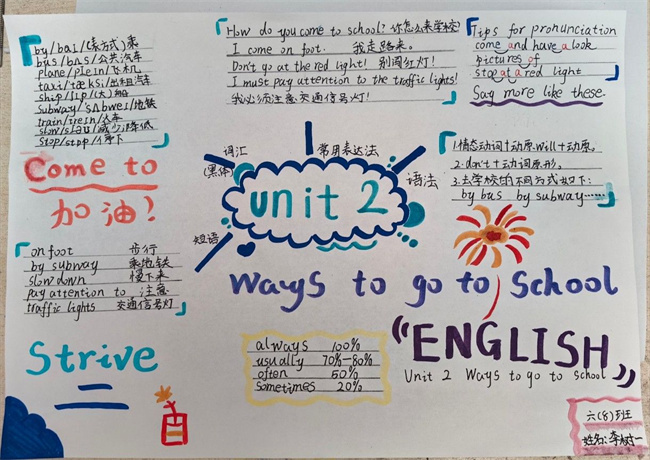 by/baɪ/(表方式)乘
bus/bʌs/公共汽车
plane/pleɪn/飞机
taxi/'tæksi/出租汽车
ship/ʃɪp/(大)船
subway/'sʌbweɪ/地铁
train/treɪn/火车
slow/sləʊ/减少,降低
stop/stɒp/停下
How do you come to school? 你怎么来学校?
I come on foot. 我走路来。
Don't go at the red light! 别闯红灯!
I must pay attention to the traffic lights!
我必须注意交通信号灯!
Tips for pronunciation
come and have a look
pictures of
stop at a red light
Say more like these.
Come to
加油!
词汇
(黑体)
常用表达法
语法
短语
unit 2
1.情态动词+动原.will+动原。
2.don't+动词原形。
3.去学校的不同方式如下:
by bus by subway……
on foot 步行
by subway 乘地铁
slow down 慢下来
pay attention to 注意
traffic lights 交通信号灯
Ways to go to School
Strive
always 100%
usually 70%-80%
often 50%
sometimes 20%
“ENGLISH”
Unit 2 Ways to go to school
六(8)班
姓名:李树一